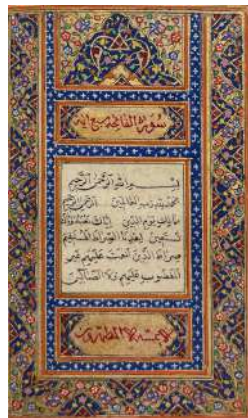 سورة الفاتحة سبع آية
بسم الله الرحمن الرحيم
الحمد لله رب العالمين الرحمن الرحيم
مالك يوم الدين إياك نعبد وإياك
نستعين اهدنا الصراط المستقيم
صراط الذين أنعمت عليهم غير
المغضوب عليهم ولا الضالين
لا يمسه إلا المطهرون